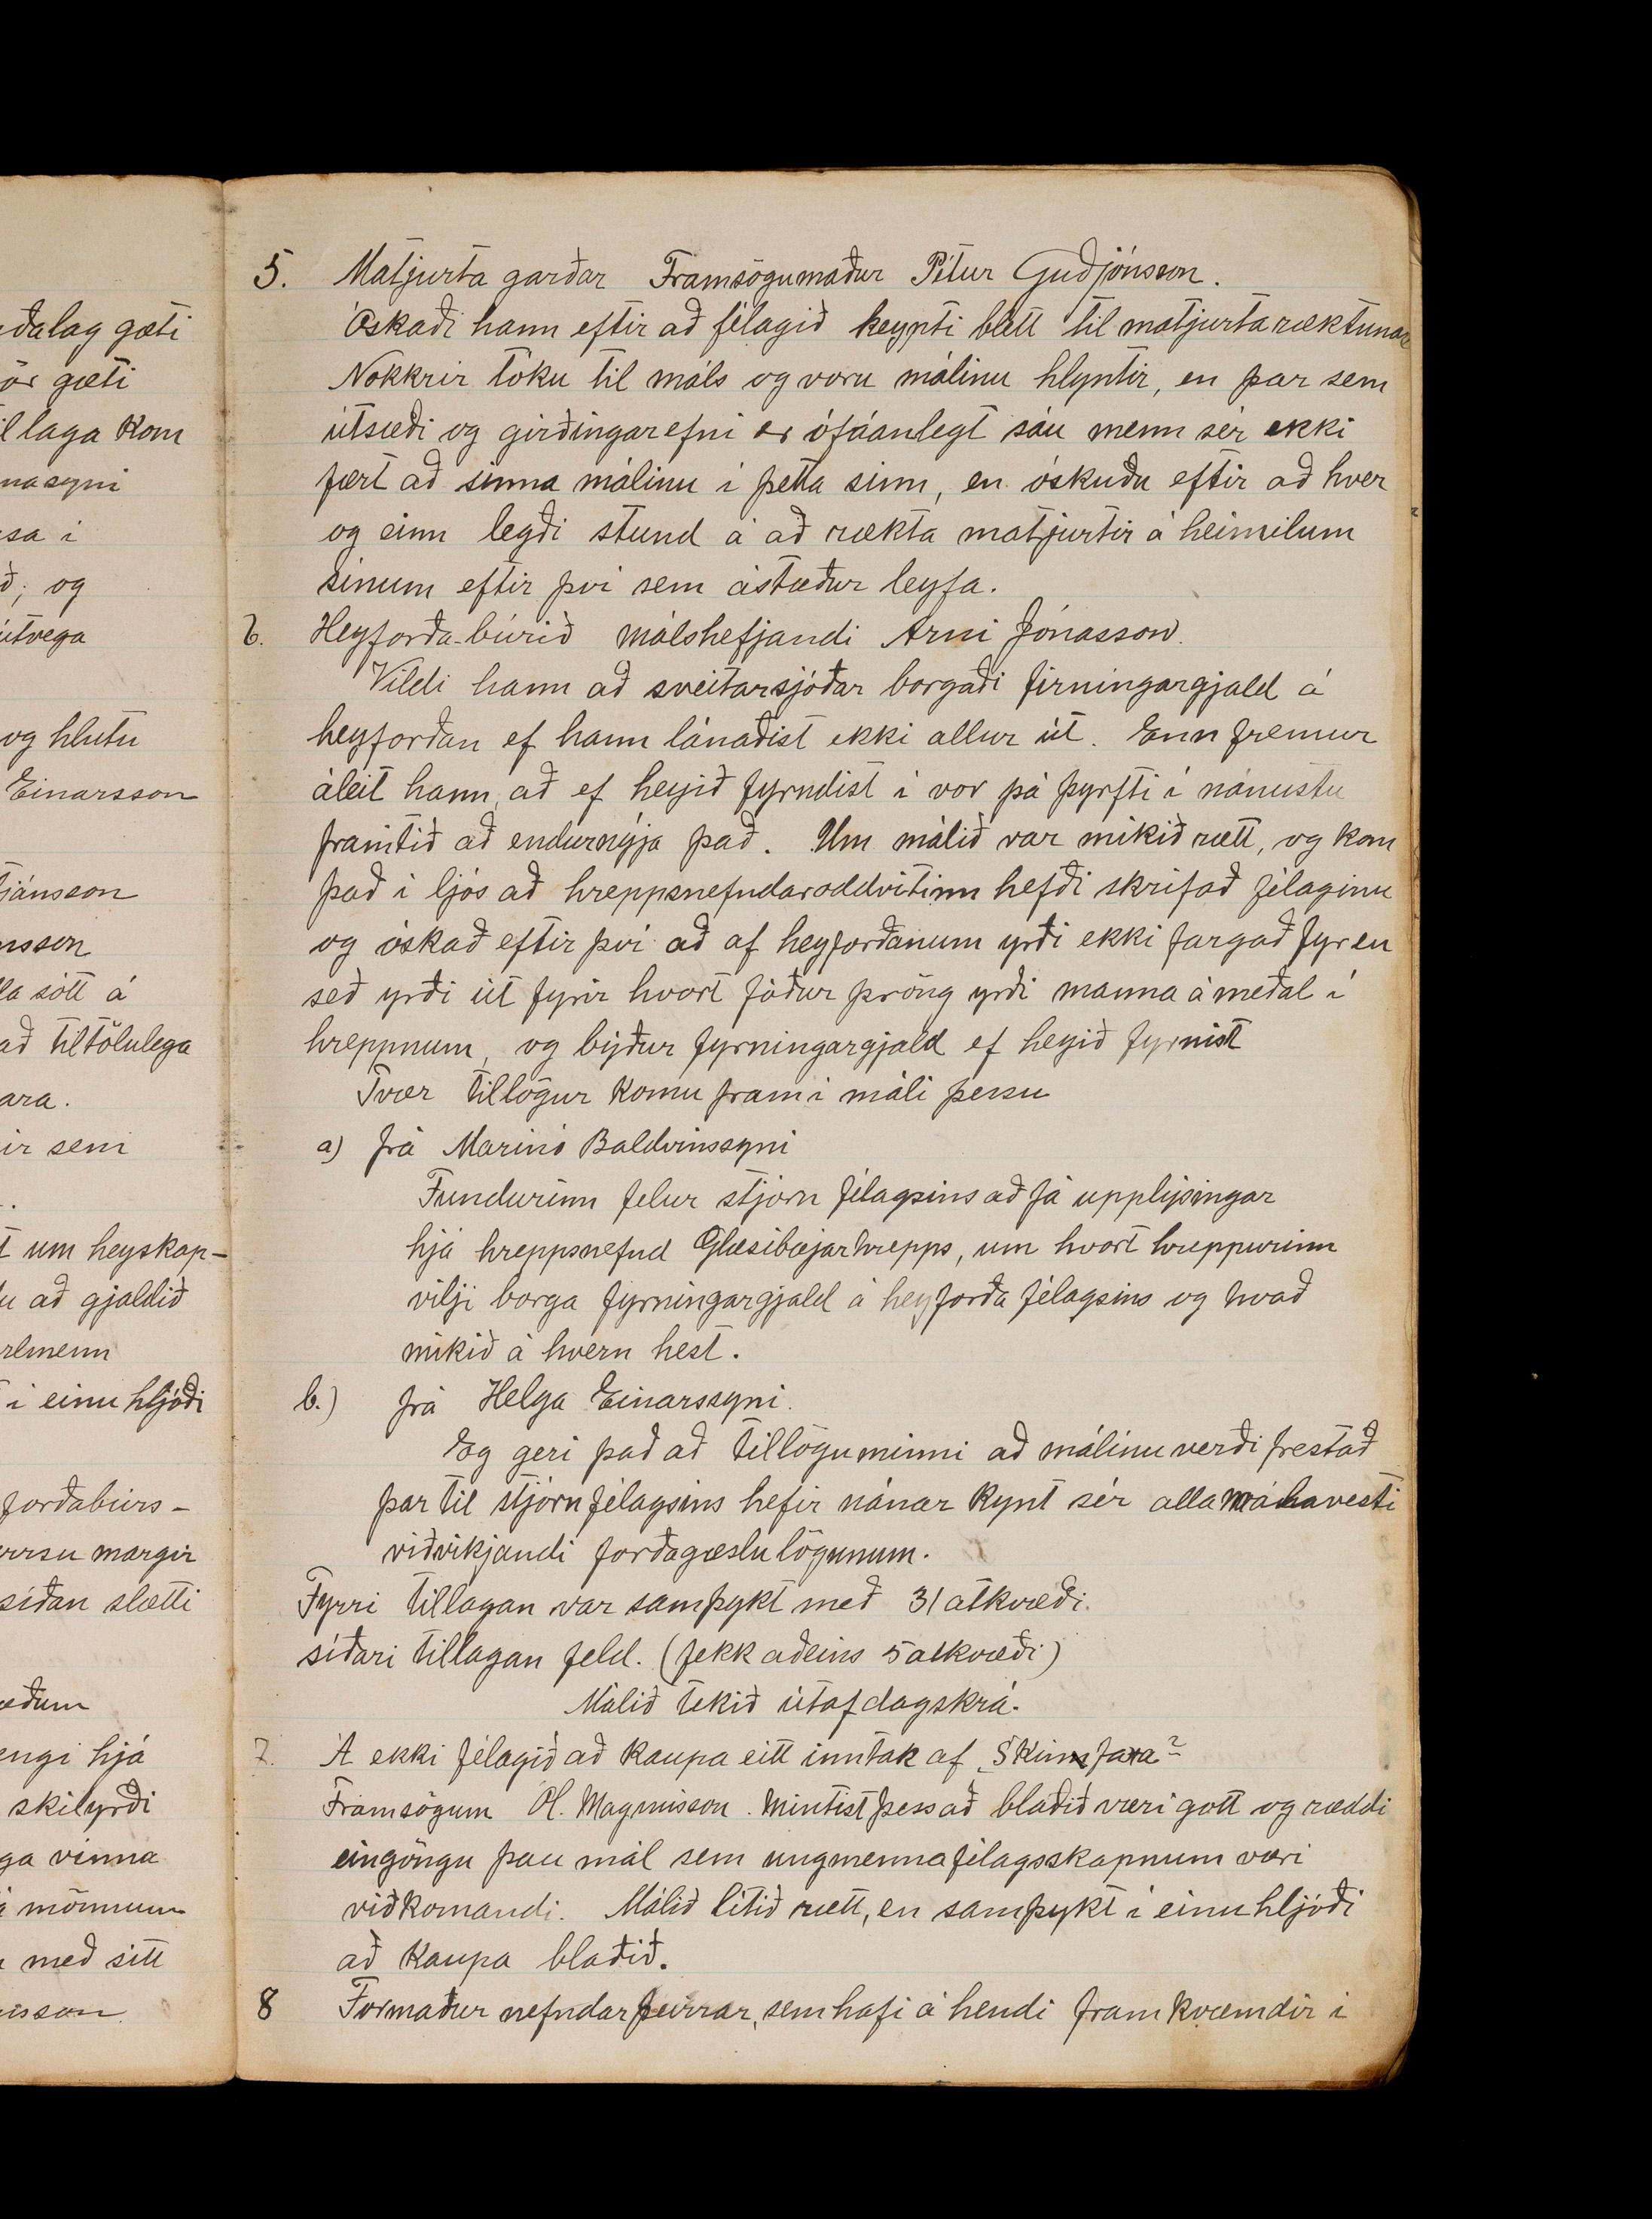 ðalag gæti
ör gæti
llaga kom
nasyni
sa í
ð; og
útvega
og hlutu
Einarsson
tjánsson
nsson
la sótt á
að tiltölulega
ara.
ir sem
t um heyskap-
u að gjaldið
rlmenn
í einu hljóði
forðabúrs-
margir
síðan slætti
æðum
engi hjá
skilyrði
ga vinna
á mönnum
með sitt
usson
5. Matjurta garðar Framsögumaður Pétur Guðjónsson.
Óskaði hann eftir að félagið keypti blett til matjurtaræktunar
Nokkrir tóku til máls og voru málinu hlyntir, en þar sem
útsæði og girðingarefni er ófáanlegt sáu menn sér ekki
fært að sinna málinu í þetta sinn, en óskuðu eftir að hver
og einn legði stund á að rækta matjurtir á heimilum
sínum eftir því sem ástæður leyfa.
6. Heyforða-búrið málshefjandi Árni Jónasson.
Vildi hann að sveitarsjóðar borgaði firningargjald á
heyforðan ef hann lánaðist ekki allur út. Enn fremur
áleit hann, að ef heyið fyrndist í vor þá þyrfti í nánustu
framtíð að endurnýja það. Um málið var mikið rætt, og kom
það í ljós að hreppsnefndaroddvitinn hefði skrifað félaginu
og óskað eftir því að af heyforðanum yrði ekki fargað fyr en
séð yrði út fyrir hvort fóður þröng yrði manna á meðal í
hreppnum, og býður fyrningargjald ef heyið fyrnist
Tvær tillögur komu fram í máli þessu
a) frá Marinó Baldvinssyni
Fundurinn felur stjórn félagsins að fá upplýsingar
hjá hreppsnefnd Glæsibæjarhrepps, um hvort hreppurinn
vilji borga fyrningargjald á heyforða félagsins og hvað
mikið á hvern hest.
b.) frá Helga Einarssyni.
Eg geri það að tillögu minni að málinu verði frestað
þar til stjórn félagsins hefir nánar kynt sér alla málavesti
viðvíkjandi forðagæslu lögunum.
Fyrri tillagan var samþykt með 31 atkvæði.
síðari tillagan feld. (fekk aðeins 5 atkvæði)
Málið tekið útaf dagskrá.
7. Á ekki félagið að kaupa eitt inntak af „Skinfaxa"
Framsögum Ól. Magnússon. Mintist þess að blaðið væri gott og ræddi
eingöngu þau mál sem ungmennafélagsskapnum væri
viðkomandi. Málið lítið rætt, en samþykt í einu hljóði
að kaupa blaðið.
8 Formaður nefndar þeirrar, sem hafi á hendi framkvæmdir í